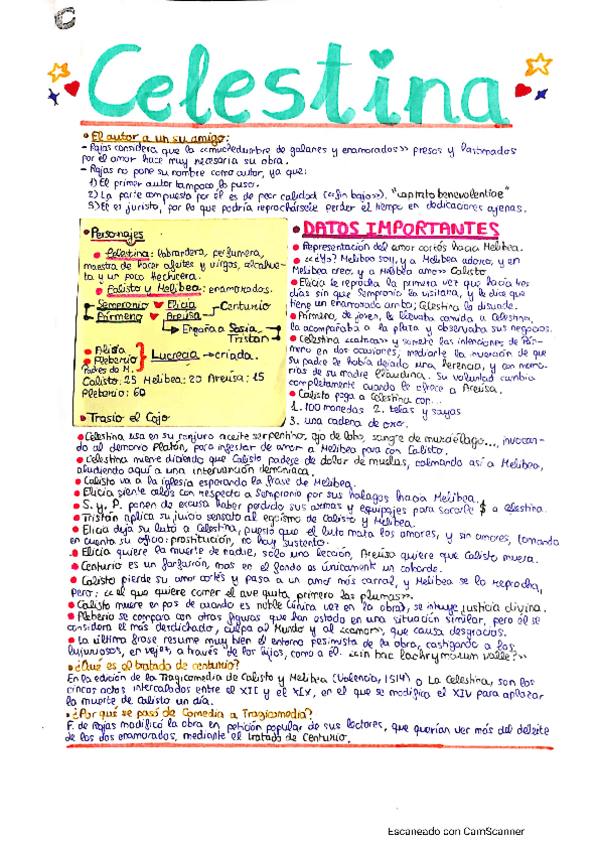 C
Celestina
• El autor a un su amigo:
- Rojas considera que la <<muchedumbre de galanes y enamorados>> presos y lastimados
por el amor hace muy necesaria su obra.
- Rojas no pone su nombre como autor, ya que:
1) El primer autor tampoco lo puso.
2) La parte compuesta por él es de peor calidad (<<fin bajo>>). "captatio benevolentiae"
3) Él es jurista, por lo que podría reprochársele perder el tiempo en dedicaciones ajenas.
• Personajes
• Celestina: labrandera, perfumera,
maestra de hacer afeites y virgos, alcahue-
ta y un poco hechicera.
• Calisto y Melibea: enamorados.
Sempronio Elicia Centurio
Pármeno Areúsa
Engaña a Sosia,
Tristán
• Alisa
• Pleberio Lucrecia criada.
Padres de M.
Calisto: 25 Melibea: 20 Areúsa: 15
Pleberio: 60
• Trasio el Cojo
• DATOS IMPORTANTES
• Representación del amor cortés hacia Melibea.
• <<¿Yo? Melibeo soy, y a Melibea adoro, y en
Melibea creo, y a Melibea amo>> Calisto
• Elicia le reprocha la primera vez que hacía tres
días sin que Sempronio la visitara, y le dice que
tiene un enamorado arriba; Celestina lo disuade.
• Pármeno, de joven, le llevaba comida a Celestina,
la acompañaba a la plaza y observaba sus negocios.
• Celestina <<calma>> y somete las intenciones de Pár-
meno en dos ocasiones, mediante la invención de que
su padre le había dejado una herencia, y con memo-
rias de su madre Claudina. Su voluntad cambia
completamente cuando le ofrece a Areúsa.
• Calisto paga a Celestina con...
1. 100 monedas 2. telas y sayas
3. una cadena de oro.
• Celestina usa en su conjuro aceite serpentino, ojo de lobo, sangre de murciélago..., invocan-
do al demonio Plutón, para infestar de amor a Melibea para con Calisto.
• Celestina miente diciendo que Calisto padece de dolor de muelas, calmando así a Melibea,
aludiendo aquí a una intervención demoníaca.
• Calisto va a la iglesia esperando la frase de Melibea.
• Elicia siente celos con respecto a Sempronio por sus halagos hacia Melibea.
• S. y P. ponen de excusa haber perdido sus armas y equipajes para sacarle $ a Celestina.
• Tristán aplica su juicio sensato al egoísmo de Calisto y Melibea.
• Elicia deja su luto a Celestina, puesto que el luto mata los amores, y sin amores, tomando
en cuenta su oficio: prostitución, no hay sustento.
• Elicia quiere la muerte de nadie, sólo una lección, Areúsa quiere que Calisto muera.
• Centurio es un fanfarrón, mas en el fondo es únicamente un cobarde.
• Calisto pierde su amor cortés y pasa a un amor más carnal, y Melibea se lo reprocha,
pero: <<el que quiere comer el ave quita primero las plumas>>.
• Calisto muere en pos de cuando es noble (única vez en la obra), se intuye justicia divina.
• Pleberio se compara con otras figuras que han estado en una situación similar, pero él se
considera el más desdichado, culpa al Mundo y al <<amor>>, que causa desgracias.
• La última frase resume muy bien el entorno pesimista de la obra, castigando a los
lujuriosos, en vejez, a través de los hijos, como a él. <<in hac lachrymarum valle?>>
• ¿Qué es el tratado de centurio?
En la edición de la Tragicomedia de Calisto y Melibea (Valencia, 1514) o La Celestina, son los
cincos actos intercalados entre el XII y el XIV, en el que se modifica el XIV para aplazar
la muerte de Calisto un día.
• ¿Por qué se pasó de Comedia a Tragicomedia?
F. de Rojas modificó la obra en petición popular de sus lectores, que querían ver más del deleite
de los dos enamorados, mediante el tratado de Centurio.
Escaneado con CamScanner